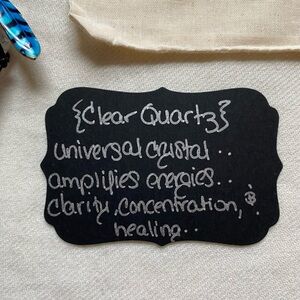 {Clear Quartz}
universal crystal . .
amplifies energies. .
clarity, concentration, &
healing. .